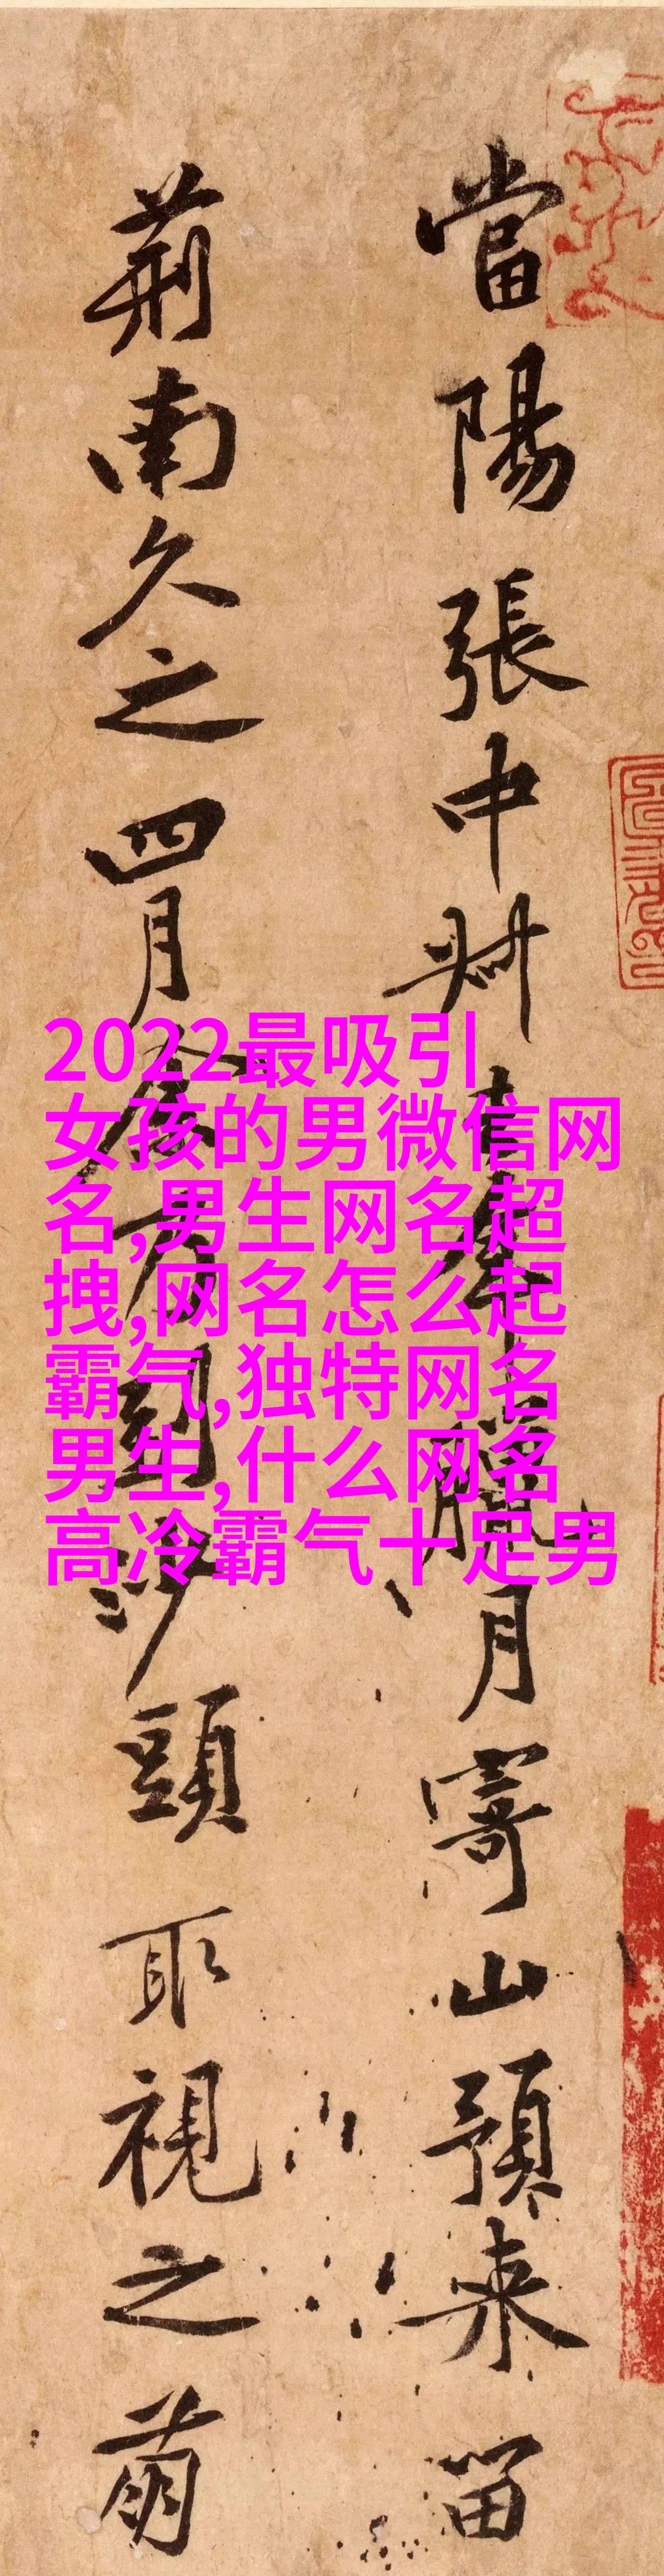 當陽張中叔去年臘月寄山預来留
荊南久之四月余到沙頭取視之萌
2022最吸引
女孩的男微信网
名,男生网名超
拽,网名怎么起
霸气,独特网名
男生,什么网名
高冷霸气十足男